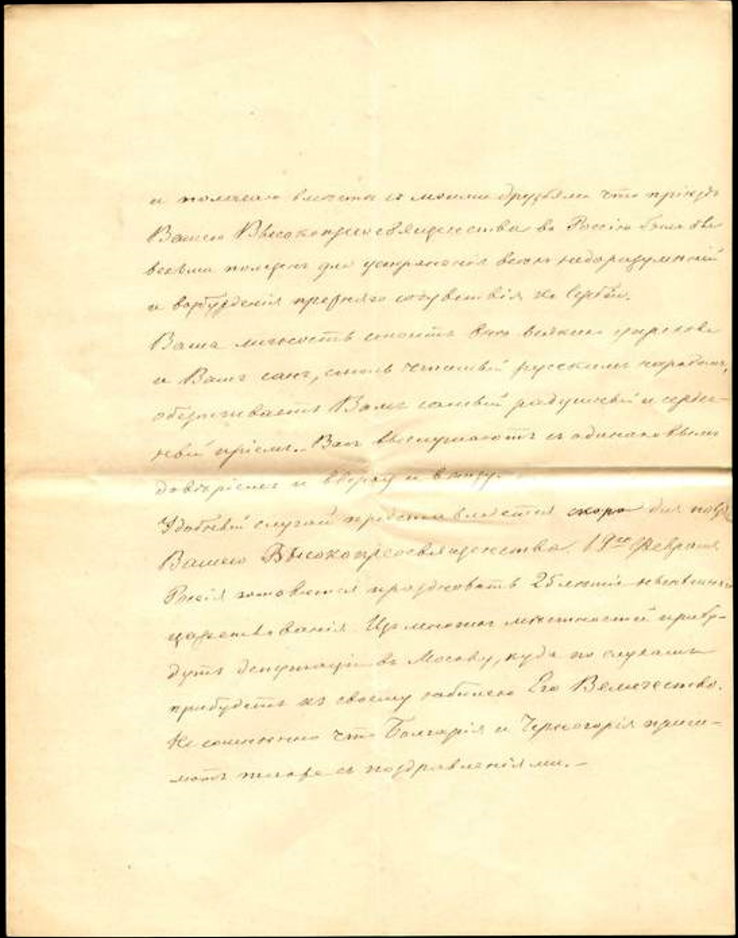 и полагаю вместе съ моими друзьями что пріѣздъ
Вашего Высокопреосвященства въ Россію былъ бы
весьма полезенъ для устраненія всѣхъ недоразумѣній
и возбужденія прежняго сочувствія къ Сербіи.
Ваша личность стоитъ внѣ всякаго упрека
и Вашъ санъ, столь чтимый русскимъ народомъ,
обезпечиваетъ Вамъ самый радушный и сердеч-
ный пріемъ. Васъ выслушаютъ съ одинаковымъ
довѣріемъ и вверху и внизу.
Удобный случай представляется скоро для
Вашего Высокопреосвященства. 19го Февраля
Россія готовится праздновать 25лѣтіе нынѣшняго
царствованія. Изъ многихъ мѣстностей прибу-
дутъ депутаціи въ Москву, куда по слухамъ
прибудетъ къ своему юбилею Его Величество.
Несомнѣнно что Болгарія и Черногорія приш-
лютъ тоже съ поздравленіями. —